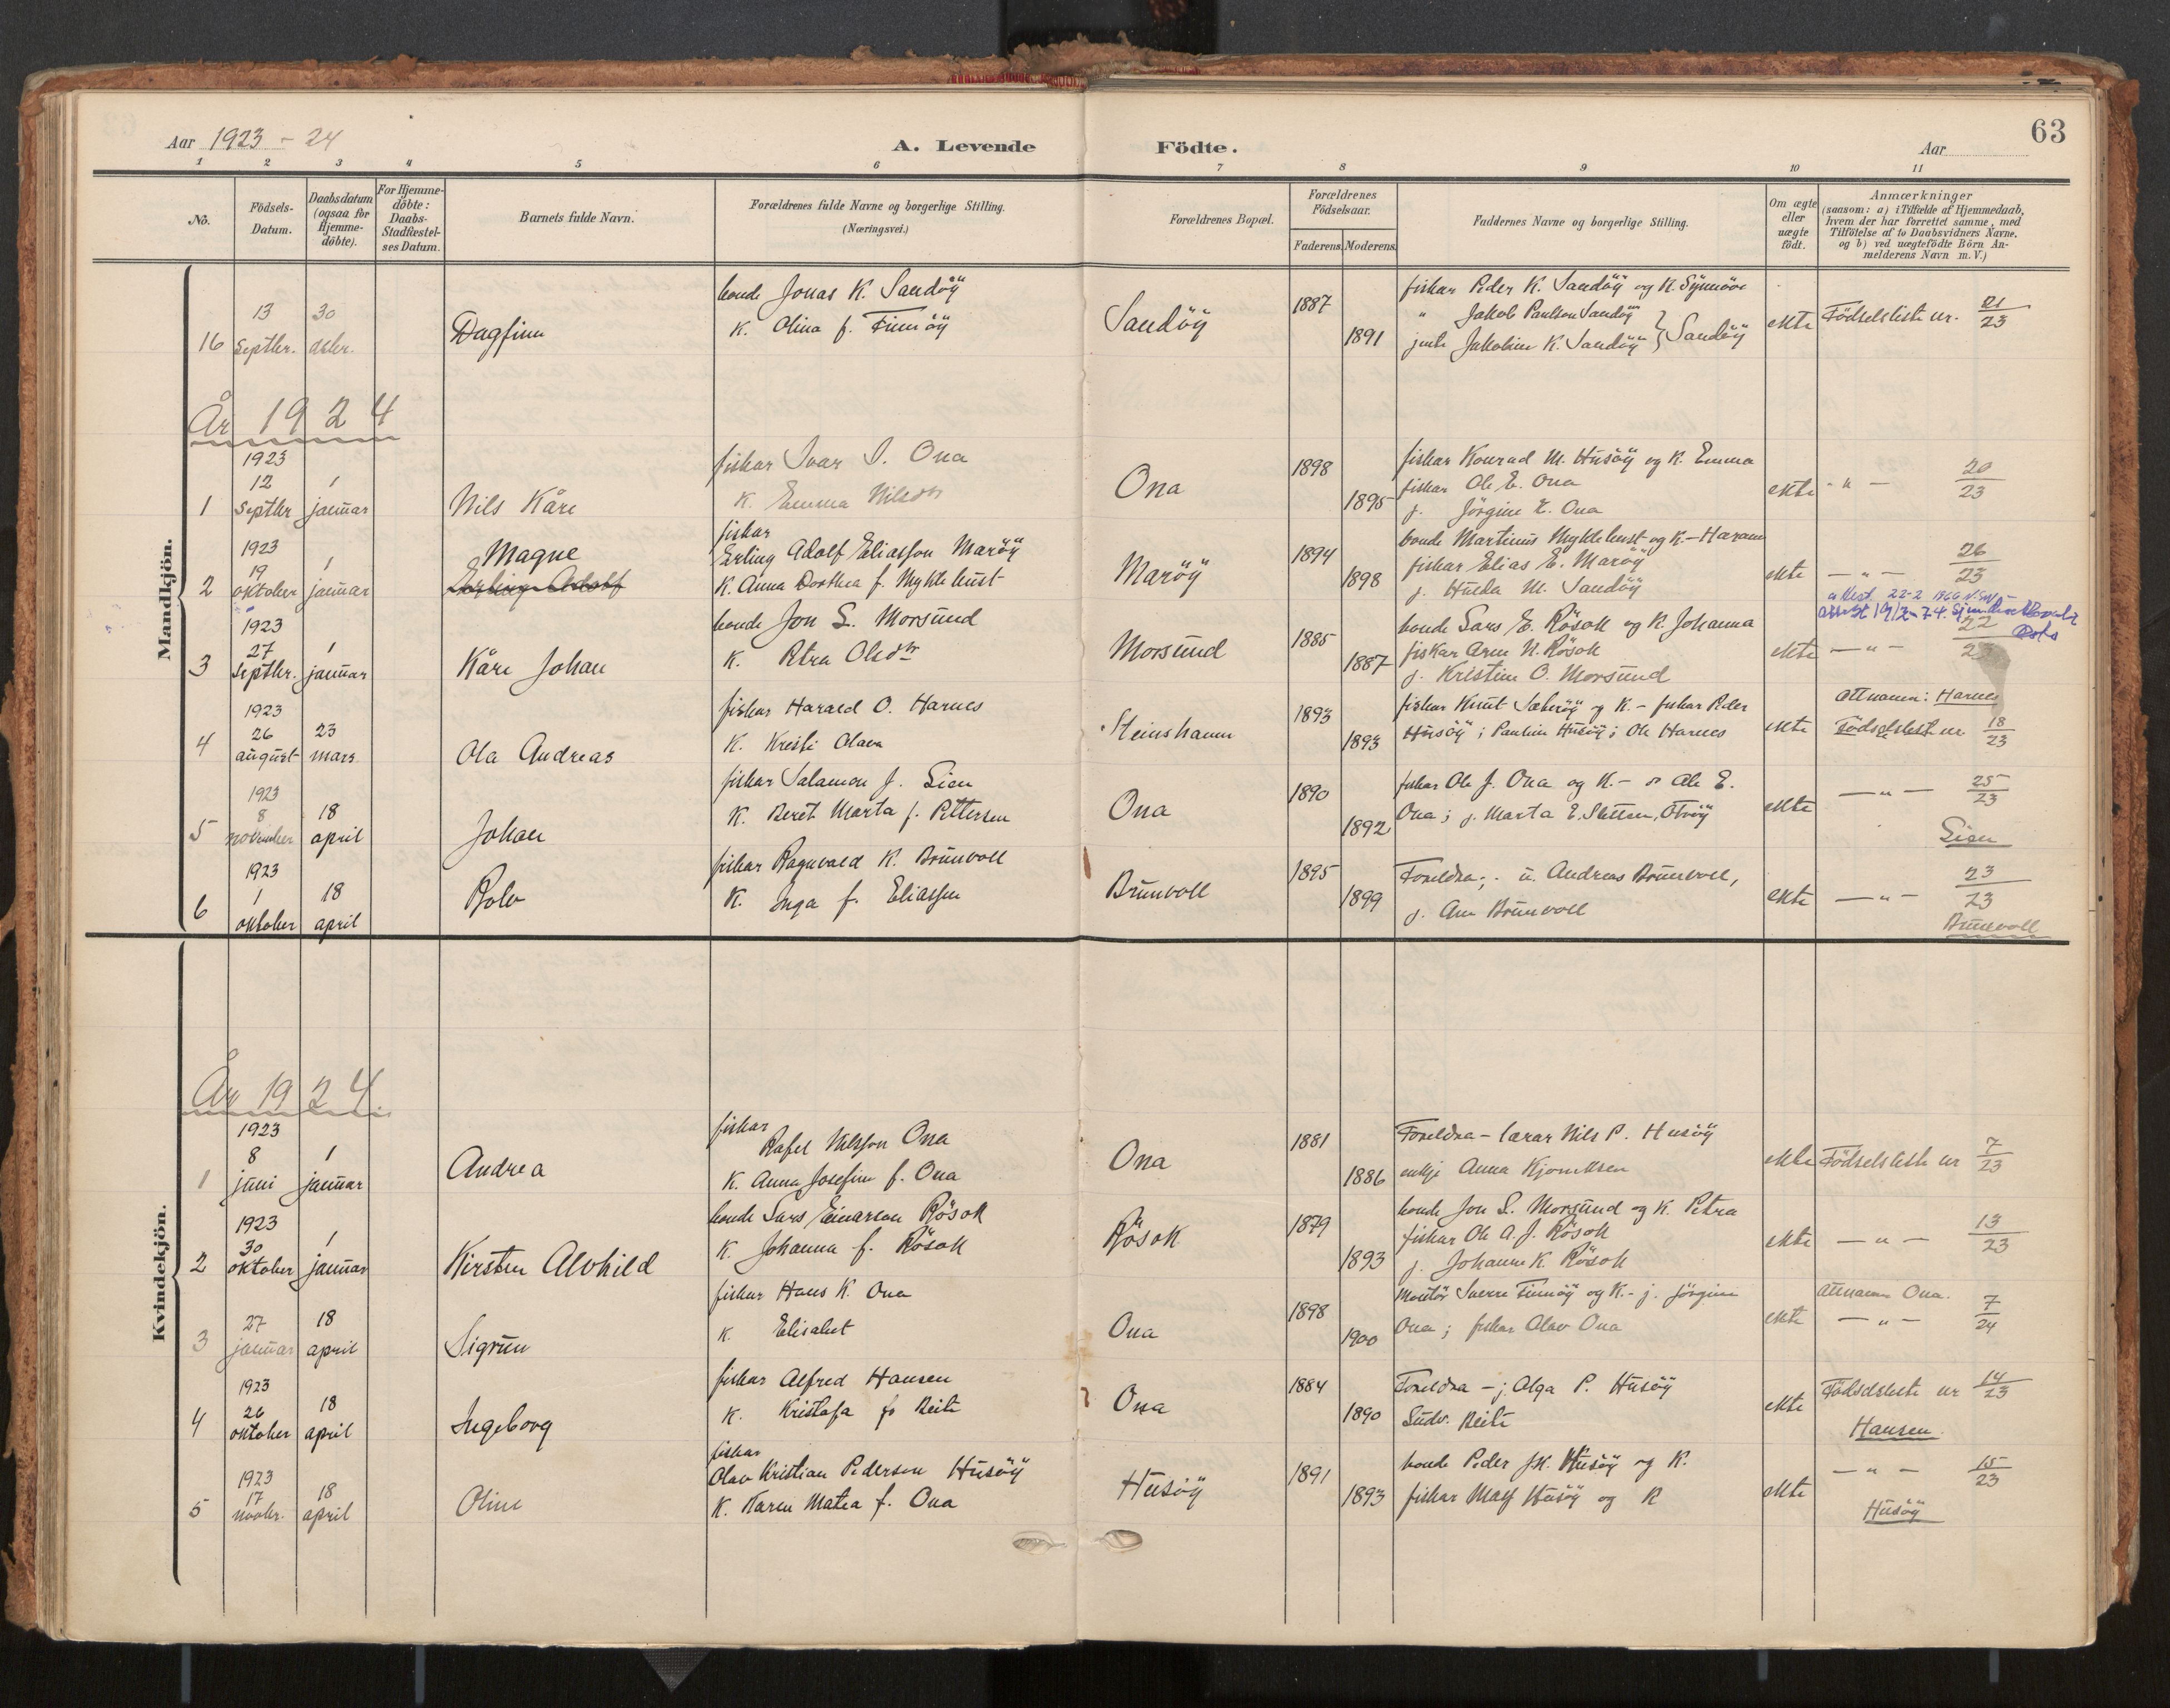 63
Aar 1923-24
A. Levende Födte.
Aar
1 2 3 4 5 6 7 8 9 10 11
No.
Födsels-
Datum.
Daabsdatum
(ogsaa for
Hjemme-
döbte).
For Hjemme-
döbte:
Daabs-
Stadfæstel-
ses Datum.
Barnets fulde Navn.
Forældrenes fulde Navne og borgerlige Stilling.
(Næringsvei.)
Forældrenes Bopæl.
Forældrenes
Födselsaar.
Faderens. Moderens.
Faddernes Navne og borgerlige Stilling.
Om ægte
eller
uægte
födt.
Anmærkninger
(saasom: a) i Tilfælde af Hjemmedaab,
hvem der har forrettet samme, med
Tilföielse af to Daabsvidners Navne.
og b) ved uægtefödte Börn An-
melderens Navn m. V.)
Mandkjön.
bonde Jonas K. Sandöÿ
13 30
16 Septbr. desbr.
Dagfinn
K. Olina f. Finnöÿ
Sandöÿ
1887
1891
fiskar Peder K. Sandöÿ og K. Synnöve
" Jakob Paulson Sandöÿ
jente Jakobine K. Sandöÿ } Sandöÿ
ekte
Födselsliste nr. 21/23
År 1924
1923
12 1
1 Septbr januar
Nils Kåre
fiskar Ivar I. Ona
K. Emma Nilsdtr
Ona
1898
1895
fiskar Konrad M. Husöÿ og K. Emma
fiskar Ole E. Ona
j. Jörgine E. Ona
ekte
- " - 20/23
1923
19 1
2 oktober januar
Magne
Erling Adolf
fiskar
Erling Adolf Eliassen Maröÿ
K. Anna Dorthea f. Myklebust
Maröÿ
1894
1898
bonde Martinus Myklebust og K. - Haram
fiskar Elias E. Maröÿ
j. Hulda M. Sandöÿ
ekte
- " - 26/23
1923
27 1
3 Septbr. januar
Kåre Johan
bonde Jon L. Morsund
K. Petra Olsdtr
Morsund
1885
1887
bonde Lars E. Rösok og K. Johanna
fiskar Arne N. Rösok
j. Kristine O. Morsund
ekte
- " - 22/23
1923
26 23
4 august mars
Ola Andreas
fiskar Harald O. Harnes
K. Kristi Olava
Steinshamn
1893
1893
fiskar Knut Sæteröÿ og K. - fiskar Peder
Husöÿ; Pauline Husöÿ; Ole Harnes
ekte
Ættnamn: Harnes
Födselsliste nr 18/23
1923
8 18
5 november april
Johan
fiskar Salamon J. Lien
K. Beret Marta f. Pettersen
Ona
1890
1892
fiskar Ole J. Ona og K. - Ole E.
Ona; j. Marta E. Slettun, Otröÿ
ekte
- " - 25/23
Lien
1923
1 18
6 oktober april
Rolv
fiskar Ragnvald K. Brunvoll
K. Inga f. Eliassen
Brunvoll
1895
1899
Foreldra; u. Andreas Brunvoll,
j. Ane Brunvoll
ekte
- " - 23/23
Brunvoll
Kvindekjön.
År 1924.
1923
8 1
1 juni januar
Andrea
fiskar
Rafel Nilsson Ona
K. Anna Josefine f. Ona
Ona
1881
1886
Foreldra - lærar Nils P. Husöÿ
enkje Anna
ekte
Födselsliste nr 7/23
1923
30 1
2 oktober januar
Kirsten Alvhild
bonde Lars Einarson Rösok
K. Johanna f. Rösok
Rösok
1879
1893
bonde Jon L. Morsund og K. Petra
fiskar Ole A. J. Rösok
j. Johanne K. Rösok
ekte
- " - 13/23
27 18
3 januar april
Sigrun
fiskar Hans K. Ona
K. Elisabet
Ona
1898
1900
Montör Sverre Finnöÿ og K. - j. Jörgine
Ona; fiskar Olav Ona
ekte
Ættnamn Ona.
- " - 7/24
1923
26 18
4 oktober april
Ingeborg
fiskar Alfred Hansen
K. Kristofa f. Beite
Ona
1884
1890
Foreldra - j. Olga P. Husöÿ
Ludv. Beite
ekte
Födselsliste nr 14/23
Hansen
1923
17 18
5 novbr. april
Oline
fiskar
Olav Kristian Pedersen Husöÿ
K. Karen Matea f. Ona
Husöÿ
1891
1893
bonde Peder JK. Husöÿ og K.
fiskar Husöÿ og K
ekte
- " - 15/23
Husöÿ